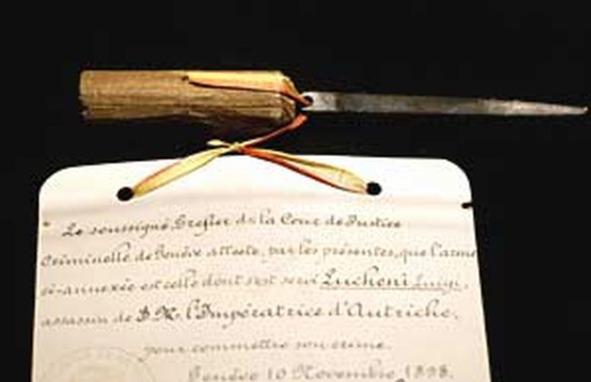 " Le soussigné, Greffier de la Cour de Justice
Criminelle de Genève atteste, par les présentes, que l'arme
ci-annexée est celle dont s'est servi Lucheni Luigi,
assassin de S. M. l'Impératrice d'Autriche,
pour commettre son crime.
Genève 10 Novembre 1898.